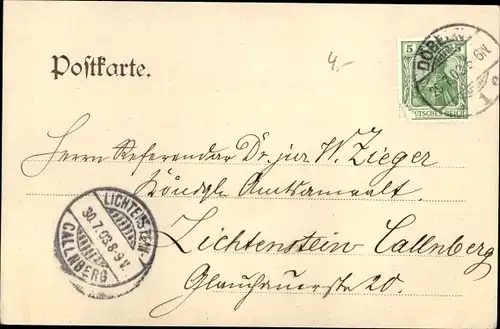 4.-
Postkarte.
5
DÖBELN
DEUTSCHES REICH
Herrn Referendar Dr. jur. W. Zieger
Königl. Amtsanwalt.
Lichtenstein Callnberg
Glauchauerstraße 20.
LICHTENSTEIN-
30.7.03.8-9V.
CALLNBERG